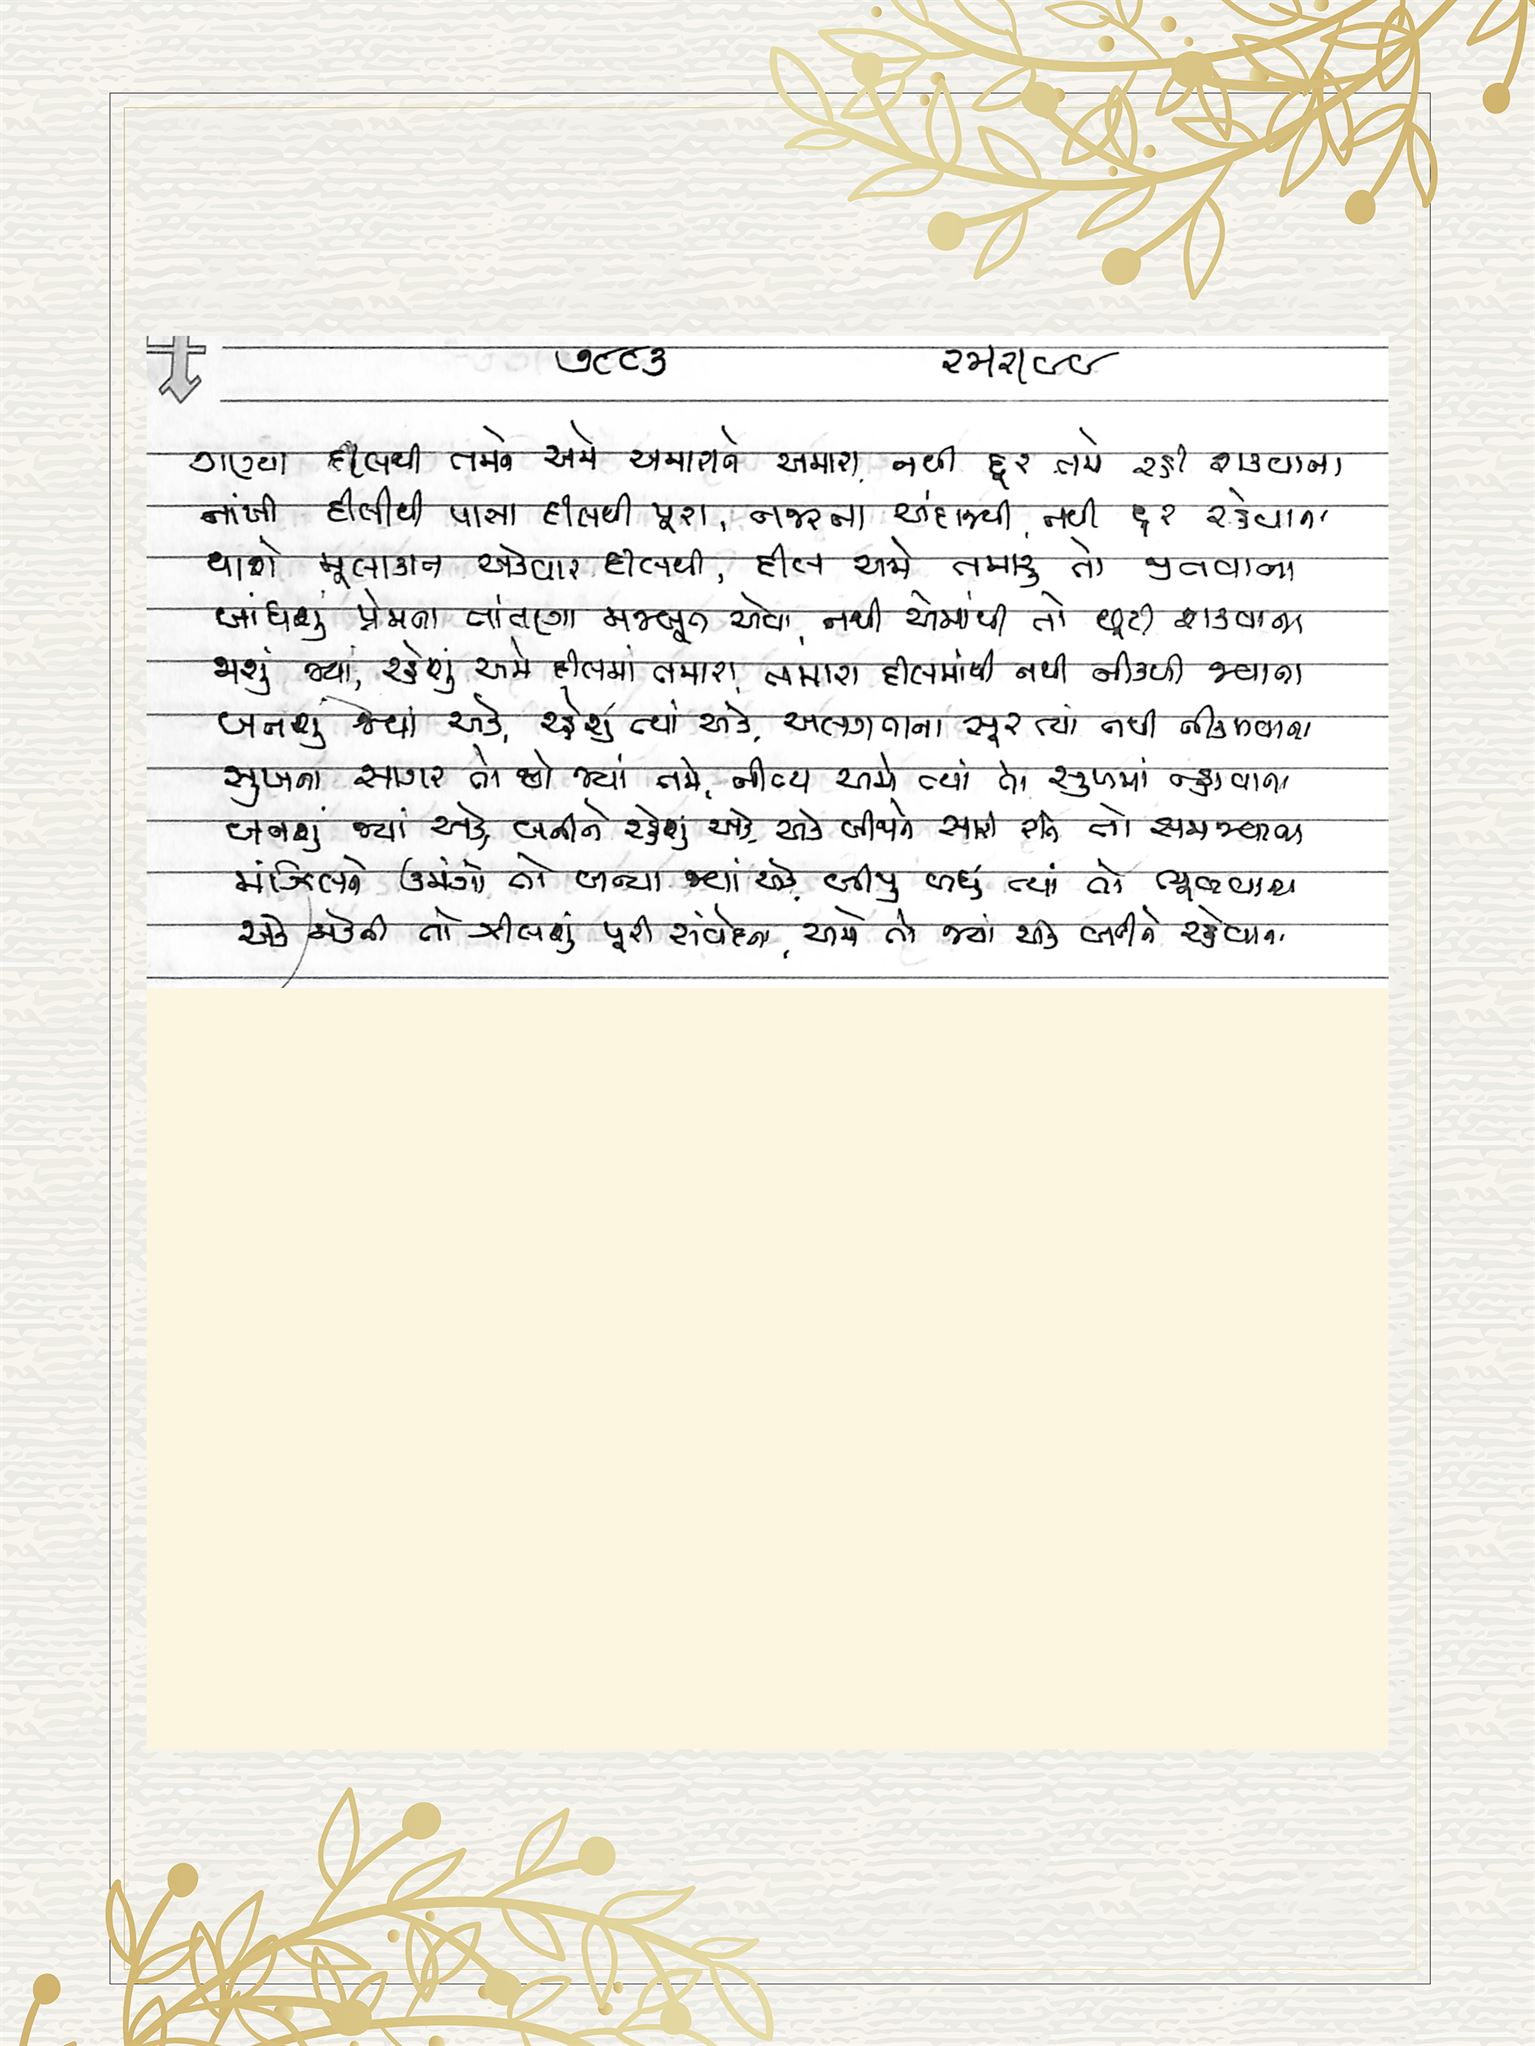 ૭૯૯૩
ગણ્યા દીલથી તમને અમે અમારાને અમારા, નથી દૂર તમે રહી શકવાના
નાંખી દીલીથી પાસા દીલથી પૂરા, નજરના અંદાજથી, નથી દૂર રહેવાના
થાશે મૂલાકાત એકવાર દીલથી, દીલ અમે તમારું તો જીતવાના
બાંધશું પ્રેમના તાંતણા મજબૂત એવા, નથી એમાંથી તો છૂટી શકવાના
જાશું જ્યાં, રહેશું અમે દીલમાં તમારા, તમારા દીલમાંથી નથી નીકળી જવાના
બનશું જ્યાં એક, રહેશું ત્યાં એક, અલગતાના સૂર ત્યાં નથી નીકળવાના
સુખના સાગર તો છો જ્યાં તમે, નીત્ય અમે ત્યાં તો સુખમાં ન્હાવાના
બનશું જ્યાં એક, બનીને રહેશું એક, એક બીજાને સારી રીતે તો સમજવાના
મંઝિલને ઉમંગો તો બન્યા જ્યાં એક, બીજુ બધું ત્યાં તો ભૂલવાના
એક મેકની તો ઝીલશું પૂરી સંવેદના, અમે તો જ્યાં એક બનીને રહેવાના